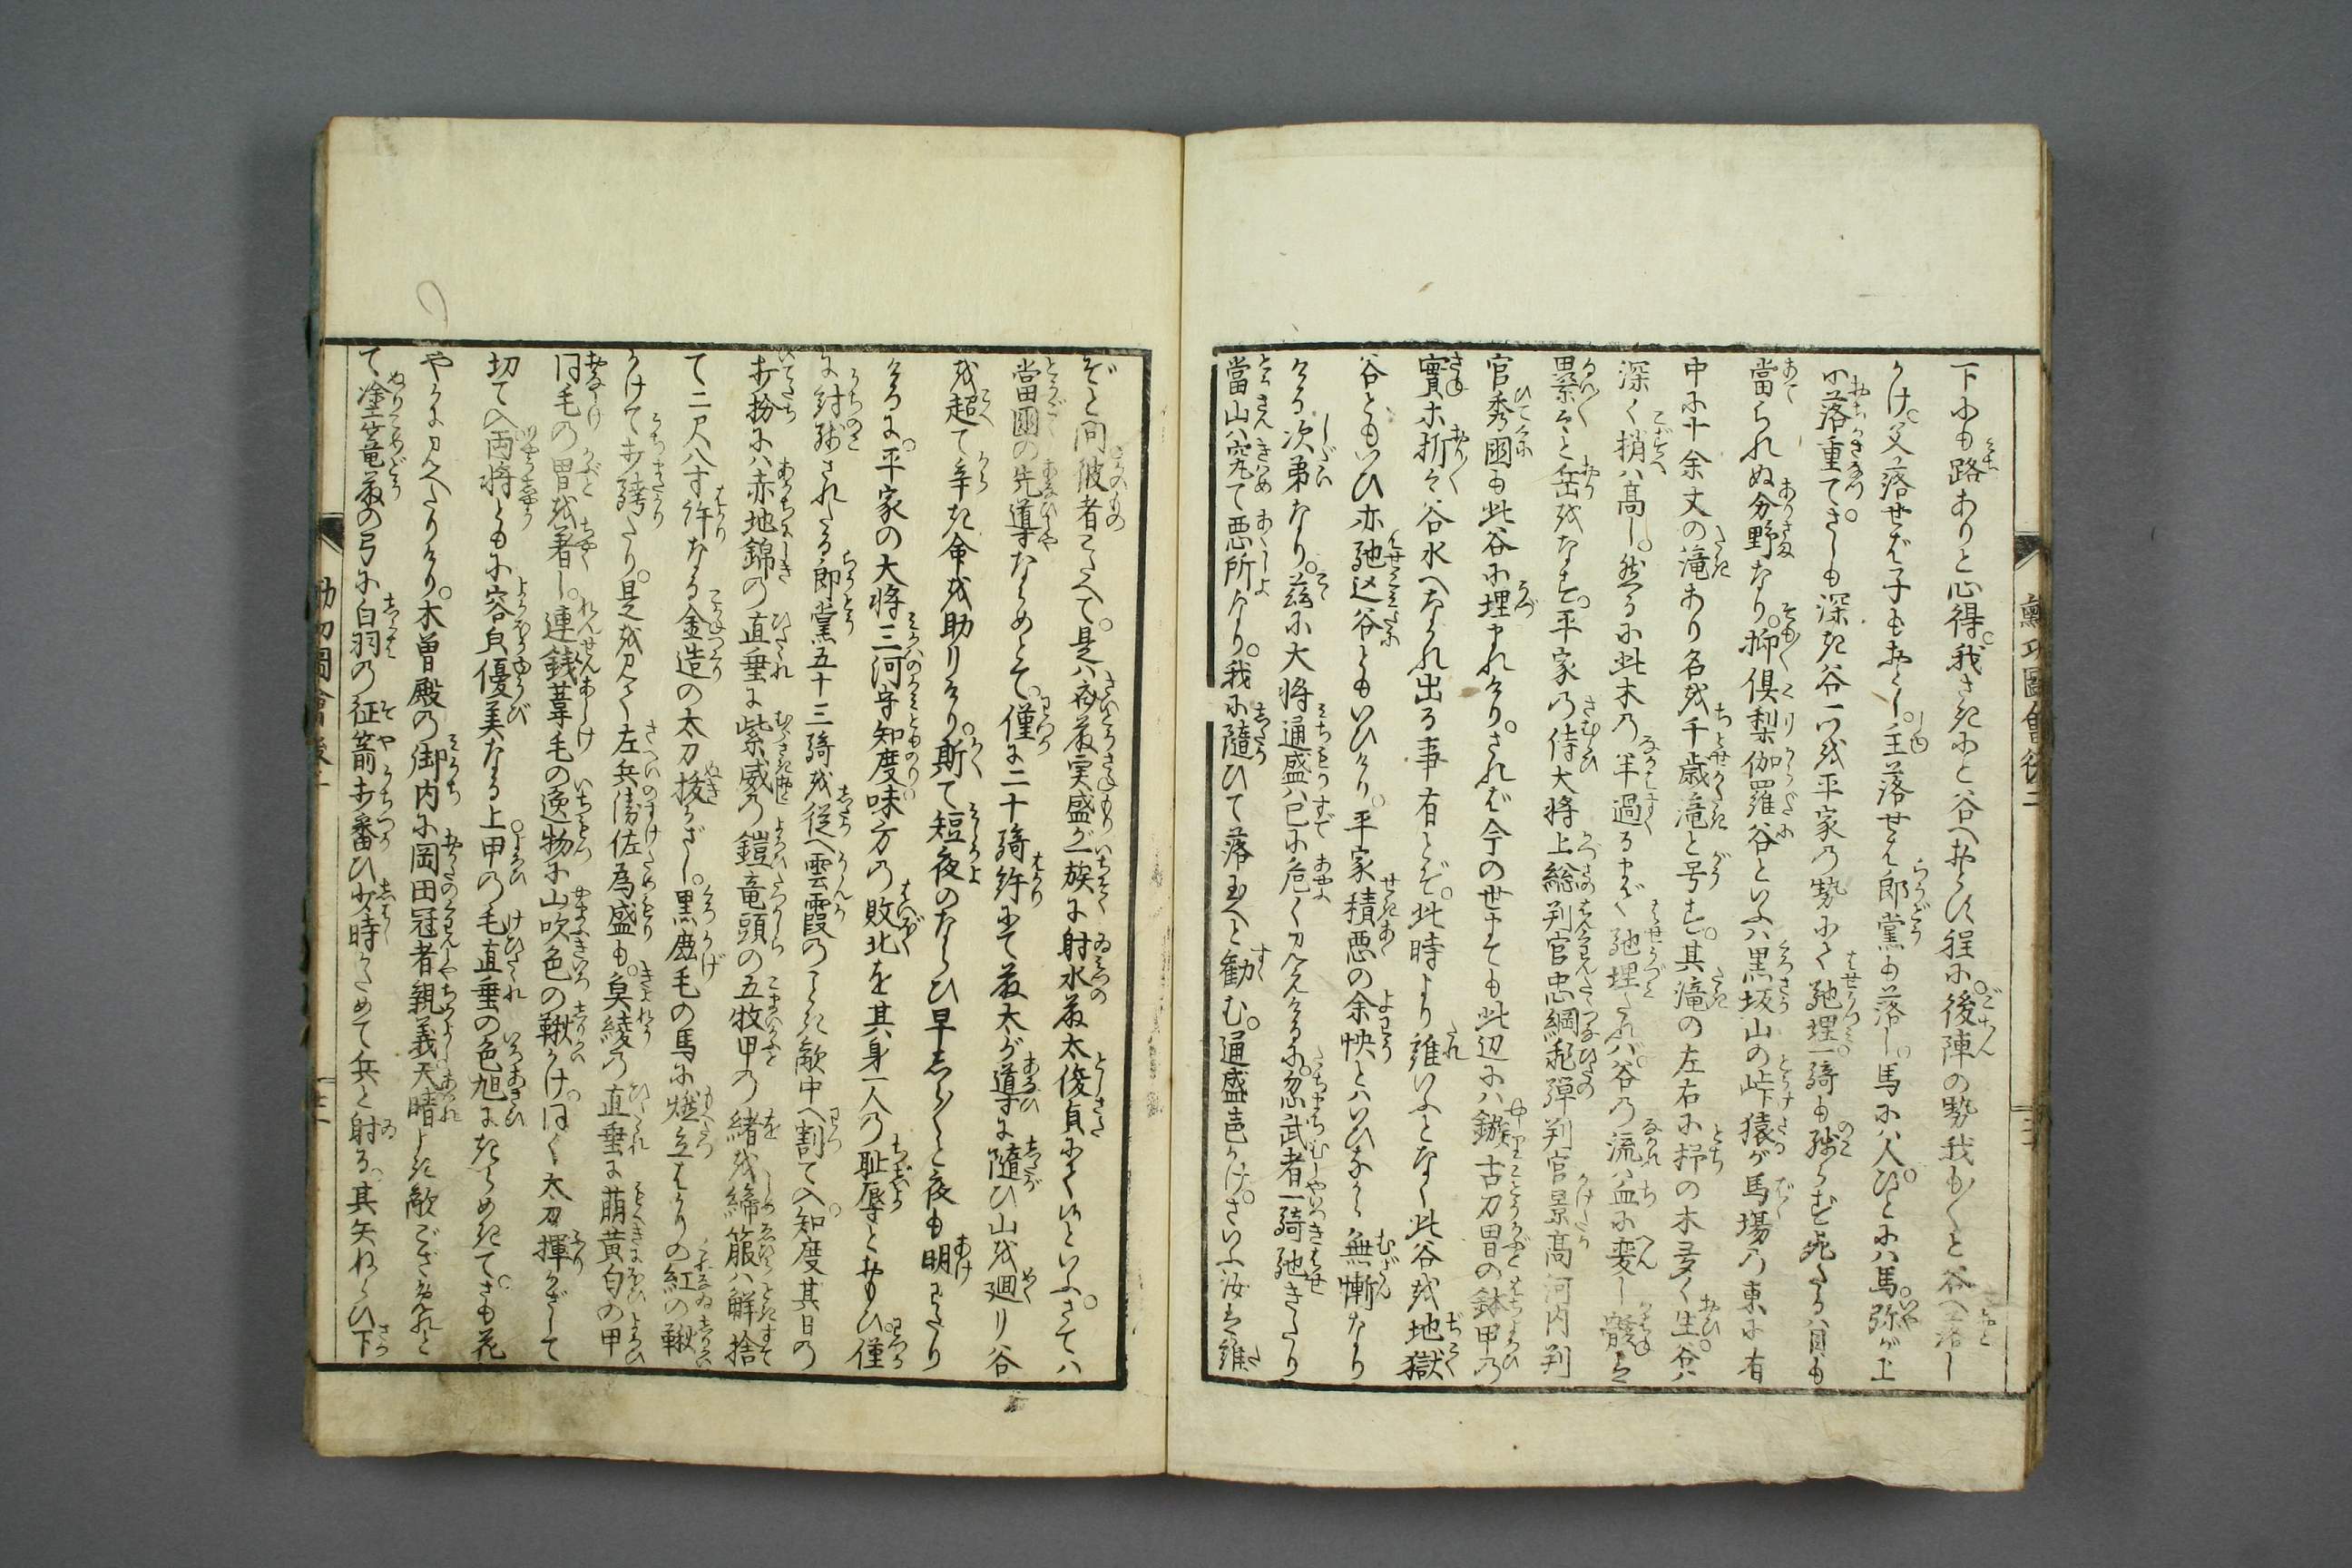 下にも路ありと心得。我さきにと谷へおとす程に。後陣の勢我も〳〵と谷へ落し
かけ。父落せば子もおとし。主落せば郎党も落し。馬には人。ひとには馬。弥が上
に落重て。さしも深き谷一つを平家の勢にて馳埋一騎も残らず死たるは目も
当られぬ分野なり。抑倶梨伽羅谷といふは黒坂山の峠猿が馬場の東に有
中に十余丈の滝あり名を千歳滝と号す。其滝の左右に杼の木多く生。谷は
深く梢は高し。然るに此木の半過るまで馳埋たれば。谷の流は血に変し。髑は
累々と岳をなす。平家の侍大将上総判官忠綱飛弾判官景高河内判
官秀国も此谷に埋れけり。されば今の世までも此辺には鏃古刀冑の鉢甲の
実木折々谷水へながれ出る事有とぞ。此時より誰いふとなく此谷を地獄
谷ともいひ亦馳込谷ともいひけり。平家積悪の余怏とはいひながら無慚なり
ける次第なり。茲に大将通盛は已に危く見えけるに。忽武者一騎馳きたり
当山は究て悪所なり。我に随ひて落玉へと勧む。通盛声かけ。さいふ汝は誰
ぞと問。彼者こたへて。是は斎藤実盛が一族に射水藤太俊貞にて候といふ。さては
当国の先導ならめとて。僅に二十騎許にて藤太が導に随ひ山を廻り谷
を超て辛き命を助りけり。斯て短夜のならひ早しら〳〵と夜も明わたり
けるに。平家の大将三河守知度。味方の敗北を其身一人の恥辱とおもひ。僅
に討残されたる郎党五十三騎を従へ雲霞のごとき敵中へ割て入。知度其日の
打扮には赤地錦の直垂に紫威の鎧竜頭の五枚甲の緒を締箙は解捨
て二尺八寸許なる金造の太刀抜かざし。黒鹿毛の馬に燃立ばかりの紅の鞦
かけて打跨たり。是を見て左兵衛佐為盛も。魚綾の直垂に萌黄匂の甲
同毛の冑を著し。連銭葦毛の逸物に山吹色の鞦かけ。同く太刀揮かざして
切て入両将ともに容貌優美なる上。甲の毛直垂の色旭にきらめきて。さも花
やかに見へたりけり。木曽殿の御内に岡田冠者親義天晴よき敵ござんなれと
て、塗篭藤の弓に白羽の征箭打番ひ少時かためて兵と射る。其矢ねらひ下